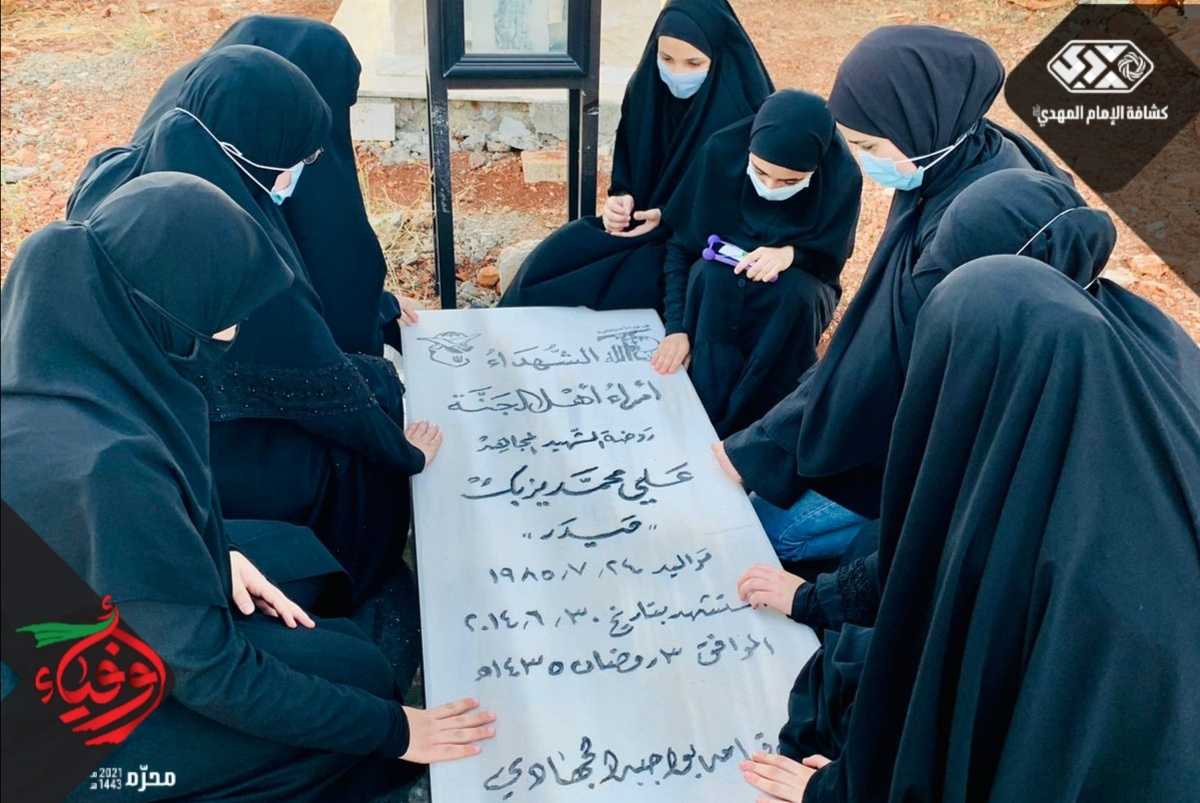 كشافة الإمام المهدي
الشُّهَدَاءُ
أمراءُ أهْل الجَنَّة
روضة الشهيد المجاهد
عَلي محمَّد يزبك
"حيدَر"
مواليد ٢٤/٧/١٩٨٥
استشهد بتاريخ ٣٠/٦/٢٠١٤
الموافق ٣ رمضان ١٤٣٥هـ
بواجبه الجهادي
أوفياء
محرّم 2021 م
1443 هـ